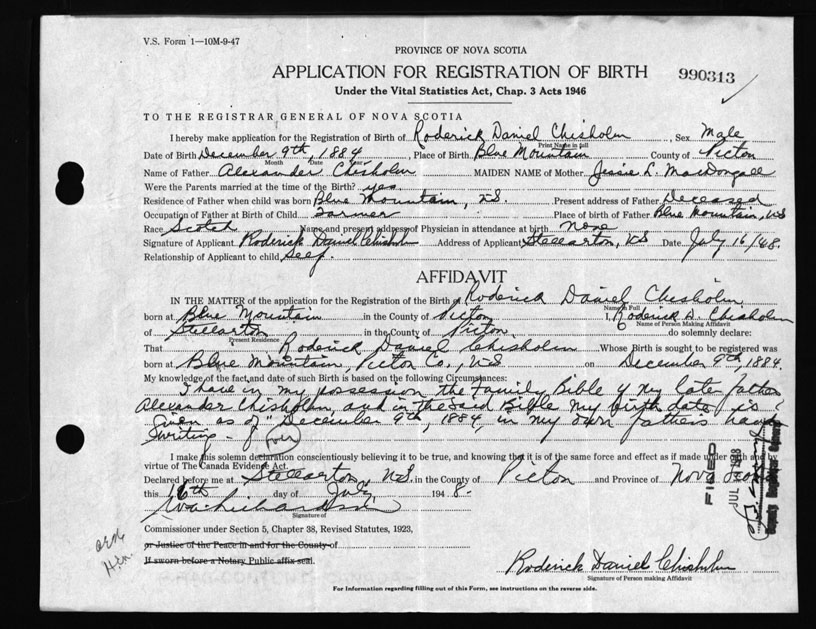 V.S. Form 1—10M-9-47
PROVINCE OF NOVA SCOTIA
APPLICATION FOR REGISTRATION OF BIRTH
990313
Under the Vital Statistics Act, Chap. 3 Acts 1946
TO THE REGISTRAR GENERAL OF NOVA SCOTIA
I hereby make application for the Registration of Birth of Roderick Daniel Chisholm, Sex Male
Print Name in full
Date of Birth December 9th, 1884, Place of Birth Blue Mountain County of Picton
Month Date Year
Name of Father Alexander Chisholm MAIDEN NAME of Mother Jessie L. MacDougall
Were the Parents married at the time of the Birth? yes
Residence of Father when child was born Blue Mountain, N.S. Present address of Father Deceased
Occupation of Father at Birth of Child Farmer Place of birth of Father Blue Mountain, NS
Race Scotch Name and present address of Physician in attendance at birth None
Signature of Applicant Roderick Daniel Chisholm Address of Applicant Stellarton, N.S Date July 16/48.
Relationship of Applicant to child Self.
AFFIDAVIT
IN THE MATTER of the application for the Registration of the Birth of Roderick Daniel Chisholm
Name in Full
born at Blue Mountain in the County of Picton I, Roderick D. Chisholm
Name of Person Making Affidavit
of Stellarton in the County of Picton do solemnly declare:
Present Residence
That Roderick Daniel Chisholm Whose Birth is sought to be registered was
born at Blue Mountain, Picton Co., N.S on December 9th, 1884.
My knowledge of the fact and date of such Birth is based on the following Circumstances:
I have in my possession the Family Bible of my late father
Alexander Chisholm, and in the said Bible my birth date is
given as of "December 9th, 1884, in my own fathers hand
writing -
over
I make this solemn declaration conscientiously believing it to be true, and knowing that it is of the same force and effect as if made under oath and by
virtue of The Canada Evidence Act.
Declared before me at Stellarton, N.S. in the County of Picton and Province of Nova Scotia
this 16th day of July, 1948.
Signature of
Commissioner under Section 5, Chapter 38, Revised Statutes, 1923,
or Justice of the Peace in and for the County of
If sworn before a Notary Public affix seal.
FILED
JUL
Roderick Daniel Chisholm
Signature of Person making Affidavit
For Information regarding filling out of this Form, see instructions on the reverse side.